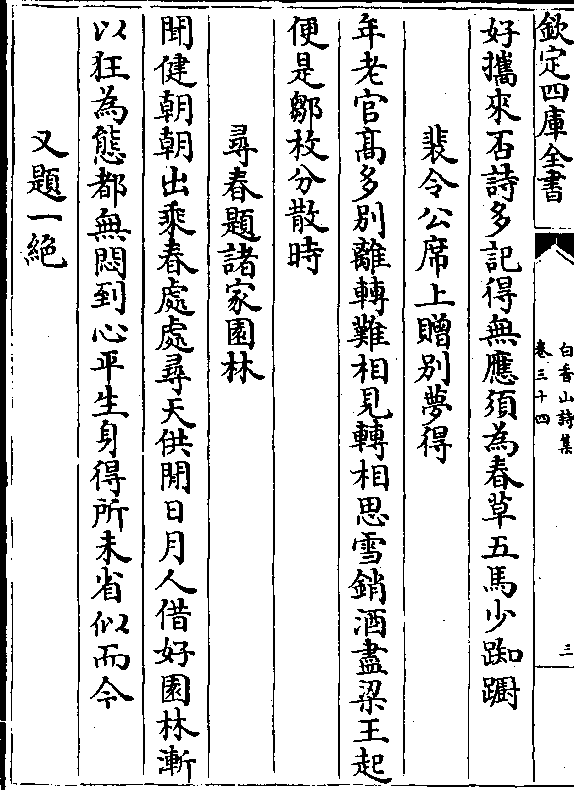 欽定四庫全書
白香山詩集
卷三十四
三
好攜來否詩多記得無應須為春草五馬少踟躕
裴令公席上贈別夢得
年老官髙多別離轉難相見轉相思雪銷酒盡梁王起
便是鄒枚分散時
尋春題諸家園林
聞健朝朝出乘春處處尋天供閒日月人借好園林漸
以狂為態都無悶到心平生身得所未省似而今
又題一絶